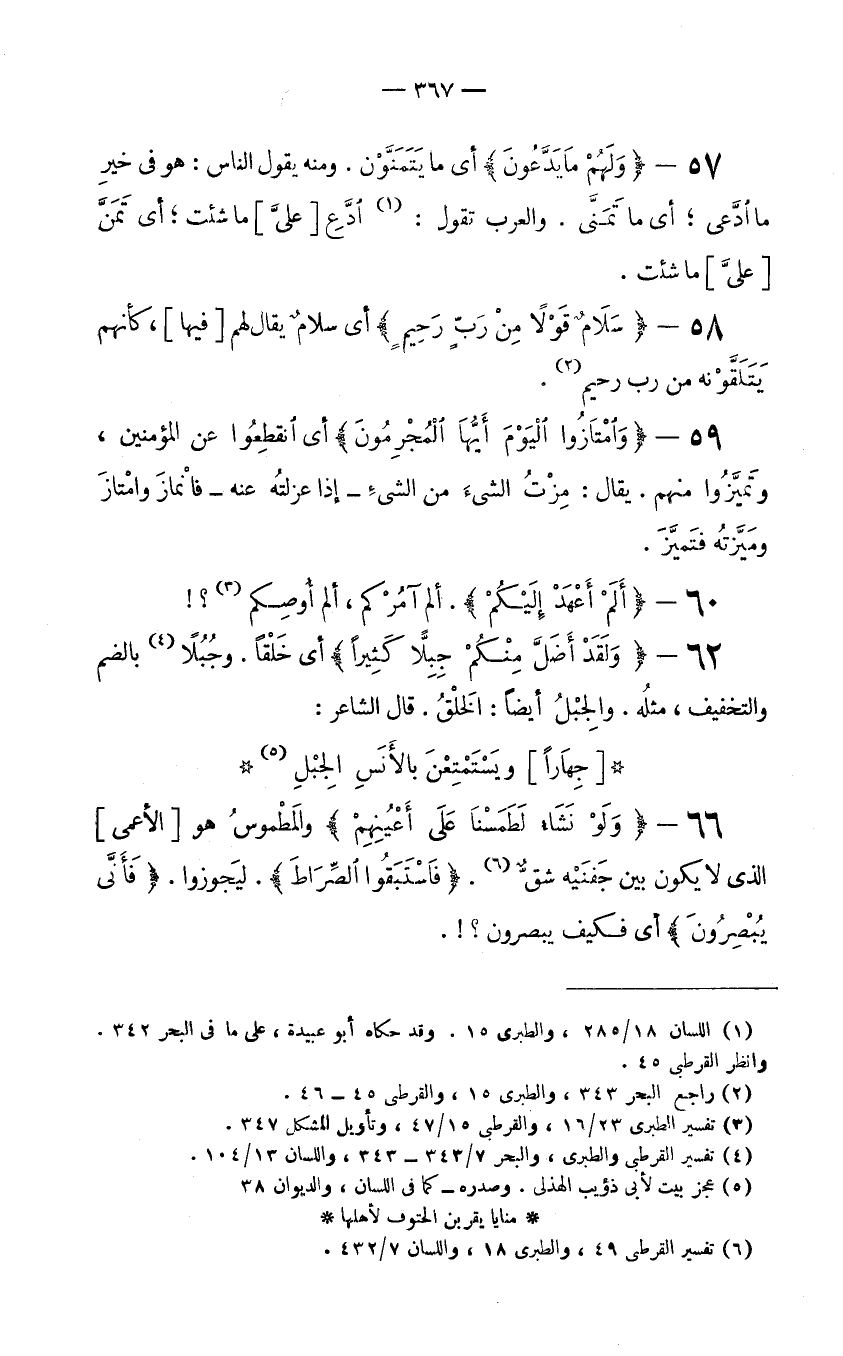 — ٣٦٧ —
٥٧ — ﴿ وَلَهُمْ مَايَدَّعُونَ ﴾ أى ما يَتَمَنَّوْن . ومنه يقول الناس : هو فى خيرِ
ما ٱدَّعى ؛ أى ما تَمَنَّى . والعرب تقول : (١) ٱدَّعِ [ علىَّ ] ما شئت ؛ أى تَمَنَّ
[ علىَّ ] ما شئت .
٥٨ — ﴿ سَلَامٌ قَوْلًا مِنْ رَبٍّ رَحِيمٍ ﴾ أى سلامٌ يقال لهم [ فيها ] ، كأنهم
يَتَلَقَّوْنه من رب رحيم (٢) .
٥٩ — ﴿ وَٱمْتَازُوا ٱلْيَوْمَ أَيُّهَا ٱلْمُجْرِمُونَ ﴾ أى ٱنقطِعُوا عن المؤمنين ،
وتَميَّزُوا منهم . يقال : مِزْتُ الشىءَ من الشىءِ ــ إذا عزلتُه عنه ــ فانْمازَ وامْتازَ
ومَيَّزتُه فتَميَّزَ .
٦٠ — ﴿ أَلَمْ أَعْهَدْ إِلَيْكُمْ ﴾ . ألم آمُرْكم ، ألم أُوصِكم (٣) ؟ !
٦٢ — ﴿ وَلَقَدْ أَضَلَّ مِنْكُمْ جِبِلًّا كَثِيراً ﴾ أى خَلْقاً . وجُبُلًا (٤) بالضم
والتخفيف ، مثلُه . والجِبْلُ أيضاً : الخَلْقُ . قال الشاعر :
* [ جِهَاراً ] ويَسْتَمْتِعْنَ بالأَنَسِ الجِبْلِ (٥) *
٦٦ — ﴿ وَلَوْ نَشَاء لَطَمَسْنَا عَلَى أَعْيُنِهِمْ ﴾ والمَطْموسُ هو [ الأعمى ]
الذى لا يكون بين جَفنَيْه شقٌّ (٦) . ﴿ فَاسْتَبَقُوا ٱلصِّرَاطَ ﴾ . ليَجوزوا . ﴿ فَأَنَّى
يُبْصِرُونَ ﴾ أى فكيف يبصرون ؟ ! .
(١) اللسان ٢٨٥/١٨ ، والطبرى ١٥ . وقد حكاه أبو عبيدة ، على ما فى البحر ٣٤٢ .
وانظر القرطبى ٤٥ .
(٢) راجع البحر ٣٤٣ ، والطبرى ١٥ ، والقرطبى ٤٥ ــ ٤٦ .
(٣) تفسير الطبرى ١٦/٢٣ ، والقرطبى ٤٧/١٥ ، وتأويل المشكل ٣٤٧ .
(٤) تفسير القرطبى والطبرى ، والبحر ٣٤٣/٧ ــ ٣٤٣ ، واللسان ١٠٤/١٣ .
(٥) عجز بيت لأبى ذؤيب الهذلى . وصدره ــ كما فى اللسان ، والديوان ٣٨
* منايا يقربن الحتوف لأهلها *
(٦) تفسير القرطبى ٤٩ ، والطبرى ١٨ ، واللسان ٤٣٢/٧ .